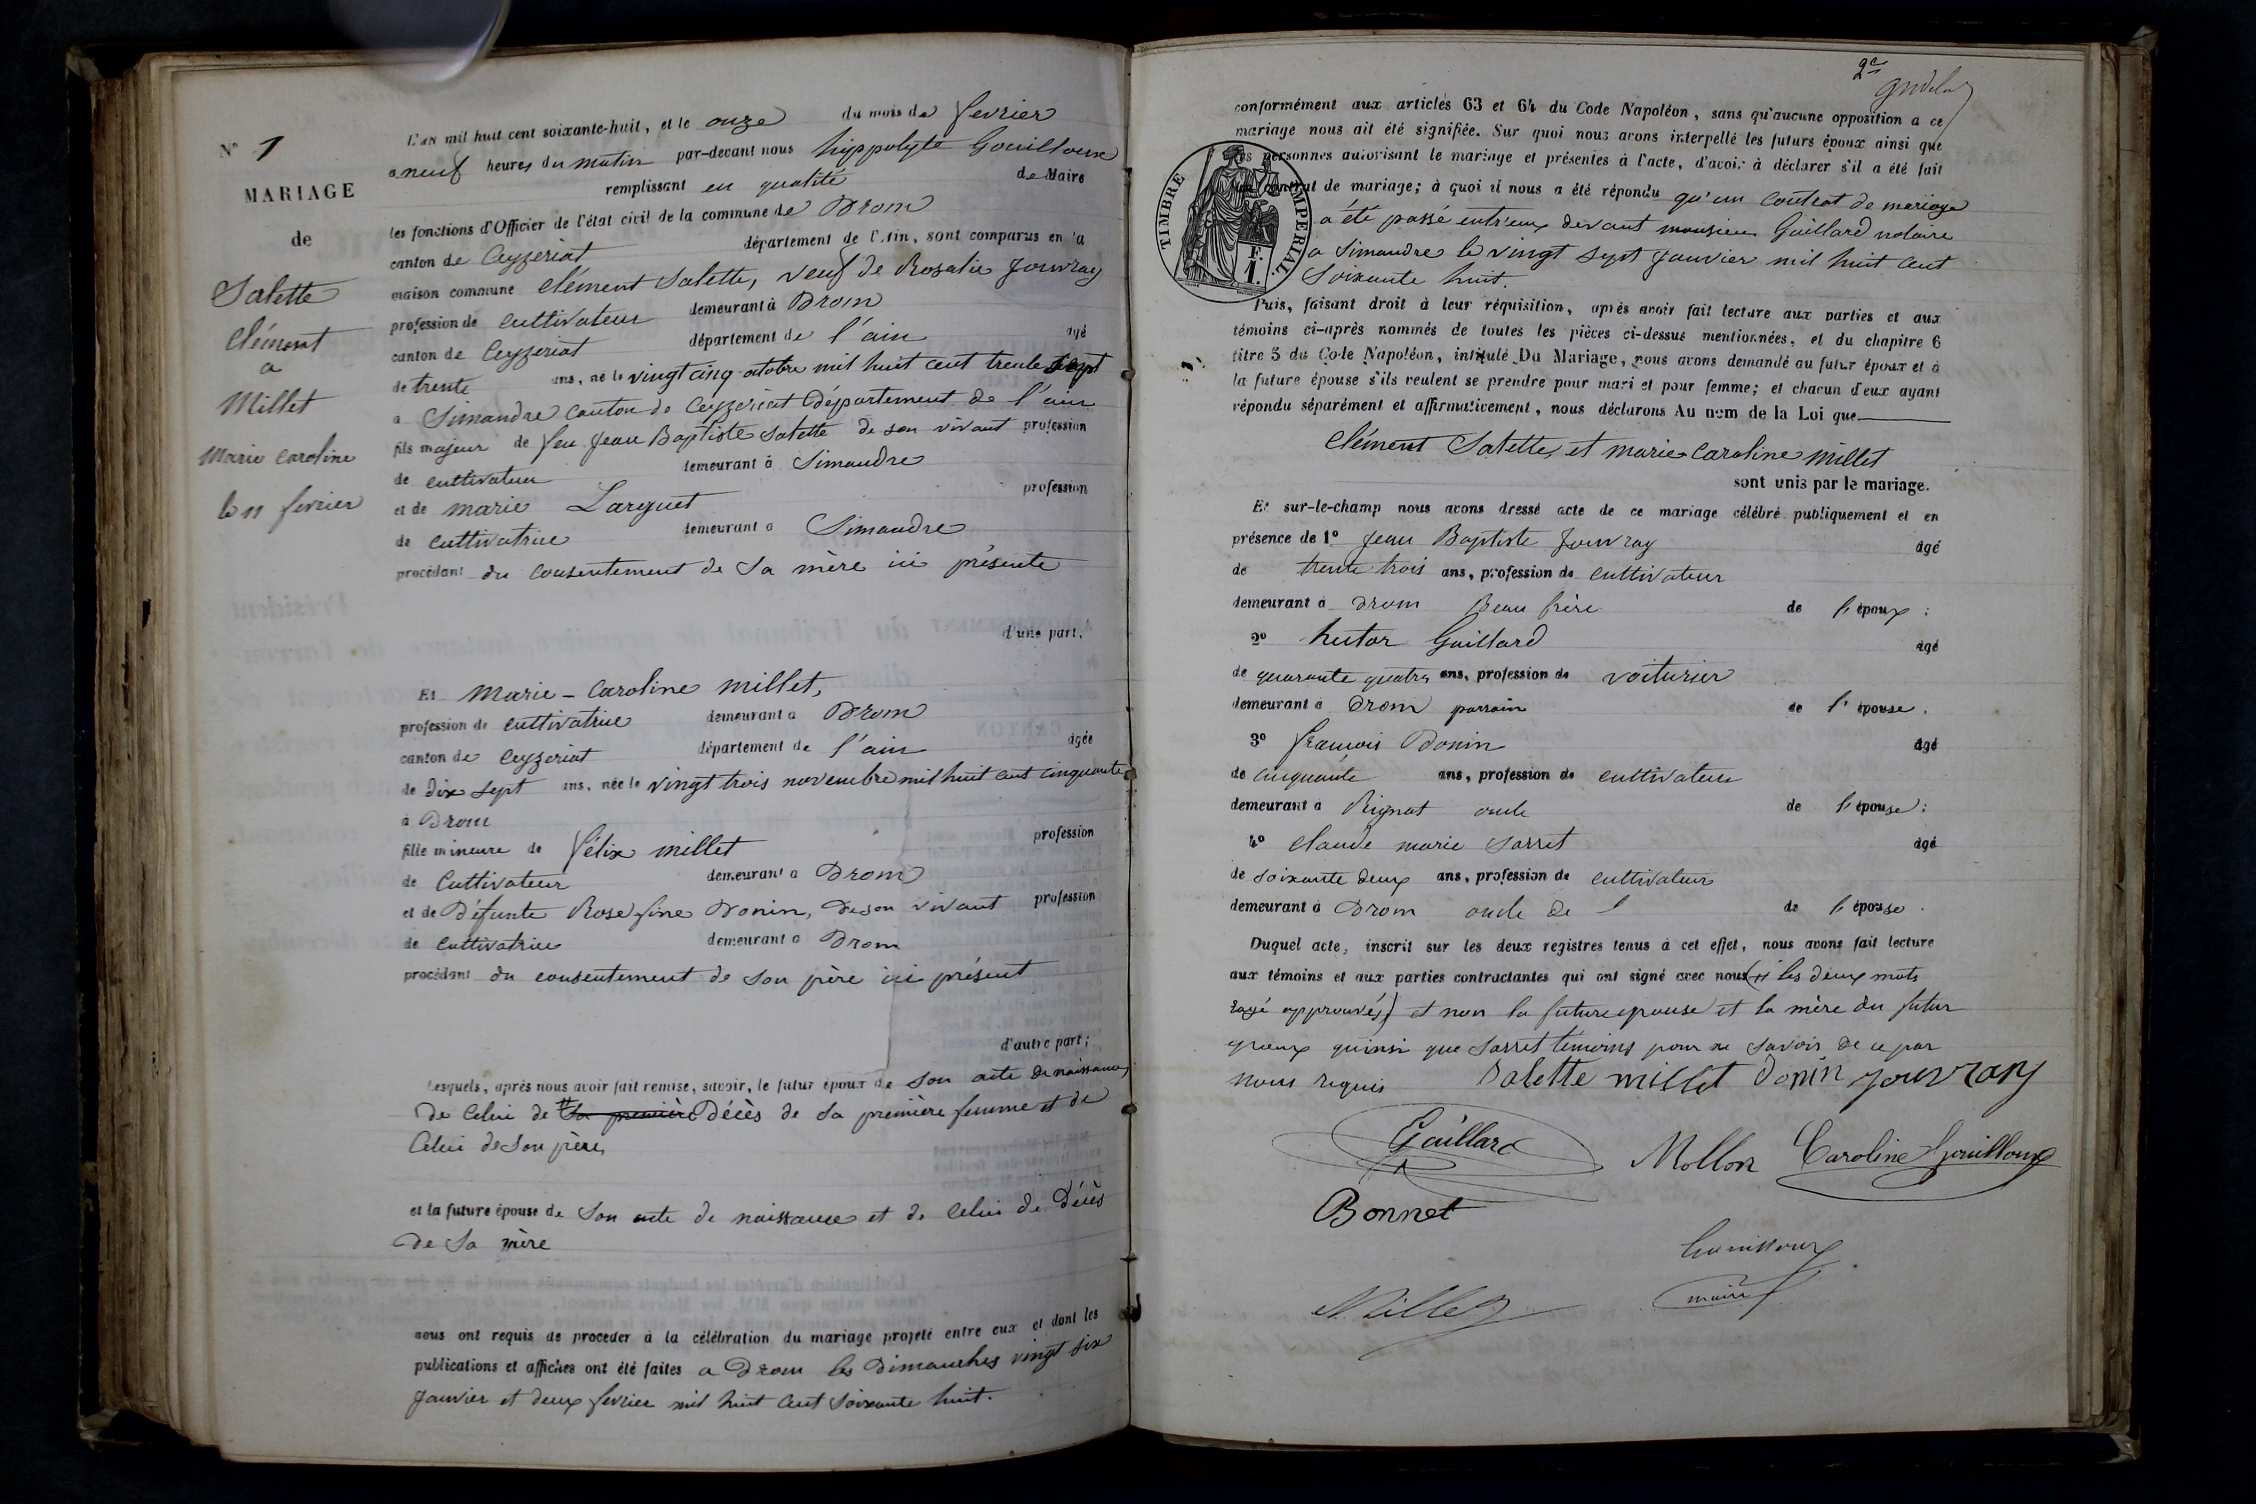 N° 1
MARIAGE
de
Salette
Clément
a
Millet
Marie Caroline
le 11 fevrier
L'an mil huit cent soixante-huit, et le onze du mois de fevrier
a neuf heures du matin par-devant nous hyppolyte Gouilloux
remplissant en qualité de Maire
les fonctions d'Officier de l'état civil de la commune de Drom
canton de Ceyzeriat département de l'Ain, sont comparus en la
maison commune Clément Salette, veuf de Rosalie Jouvray
profession de cultivateur demeurant à Drom
canton de Ceyzeriat département de l'ain agé
de trente ans, né le vingt cinq octobre mil huit cent trente sept
a Simandre canton de Ceyzeriat département de l'ain
fils majeur de feu Jean Baptiste Salette de son vivant profession
de cultivateur demeurant à Simandre
et de marie Larguet profession
de cultivatrice demeurant a Simandre
procédant du consentement de sa mère ici présente
d'une part.
Et Marie-Caroline Millet,
profession de cultivatrice demeurant a Drom
canton de Ceyzeriat département de l'ain agée
de dix sept ans, née le vingt trois novembre mil huit cent cinquante
à Drom
fille mineure de Félix Millet profession
de Cultivateur demeurant a Drom
et de Défunte Rose fine Donin, de son vivant profession
de cultivatrice demeurant a Drom
procédant du consentement de son père ici présent
d'autre part;
Lesquels, après nous avoir fait remise, savoir, le futur époux de son acte de naissance,
de celui de sa première Décès de sa première femme et de
Celui de son père,
et la future épouse de son acte de naissance et de celui de Décès
de sa mère
nous ont requis de proceder à la célébration du mariage projeté entre eux et dont les
publications et affiches ont été faites a Drom les Dimanches vingt six
Janvier et deux fevrier mil huit cent soixante huit.
2e
conformément aux articles 63 et 64 du Code Napoléon, sans qu'aucune opposition a ce
mariage nous ait été signifiée. Sur quoi nous avons interpellé les futurs époux ainsi que
les personnes autorisant le mariage et présentes à l'acte, d'avoir à déclarer s'il a été fait
un contrat de mariage; à quoi il nous a été répondu qu'un contrat de mariage
a été passé entr'eux devant monsieur Gaillard notaire
a Simandre le vingt sept Janvier mil huit cent
Soixante huit.
TIMBRE IMPERIAL.
F.
1.
Puis, faisant droit à leur réquisition, après avoir fait lecture aux parties et aux
témoins ci-après nommés de toutes les pièces ci-dessus mentionnées, et du chapitre 6
titre 5 du Code Napoléon, intitulé Du Mariage, nous avons demandé au futur époux et à
la future épouse s'ils veulent se prendre pour mari et pour femme; et chacun d'eux ayant
répondu séparément et affirmativement, nous déclarons Au nom de la Loi que
Clément Salette, et marie Caroline Millet
sont unis par le mariage.
Et sur-le-champ nous avons dressé acte de ce mariage célébré publiquement et en
présence de 1° Jean Baptiste Jouvray agé
de trente trois ans, profession de cultivateur
demeurant à Drom Beau frère de l'époux;
2° hector Gaillard agé
de quarante quatre ans, profession de voiturier
demeurant à Drom parrain de l'épouse.
3° françois Donin agé
de cinquante ans, profession de cultivateur
demeurant à Rignat oncle de l'épouse;
4° Claude marie Sarret agé
de soixante deux ans, profession de cultivateur
demeurant à Drom oncle de l de l'épouse.
Duquel acte, inscrit sur les deux registres tenus à cet effet, nous avons fait lecture
aux témoins et aux parties contractantes qui ont signé avec nous (# les deux mots
rayé approuvés) et non la future epouse et la mère du futur
epoux quinsi que Sarret témoins pour ne savoir de ce par
nous requis Salette Millet Donin Jouvray
Gaillard Mollon Caroline Gouilloux
Bonnet
Gouilloux
maire
Millet